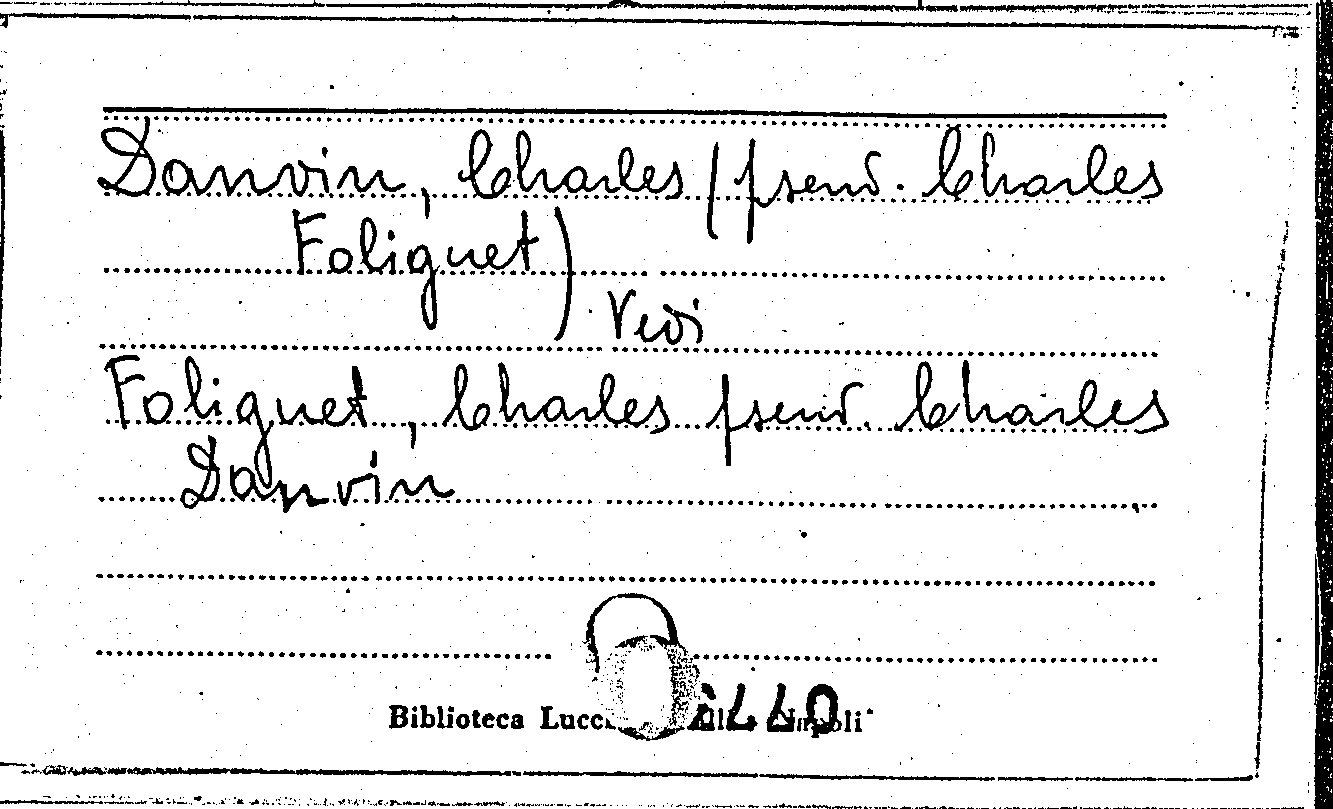 Danvin, Charles (pseud. Charles
Foliguet)
Vedi
Foliguet, Charles pseud. Charles
Danvin
Biblioteca Napoli